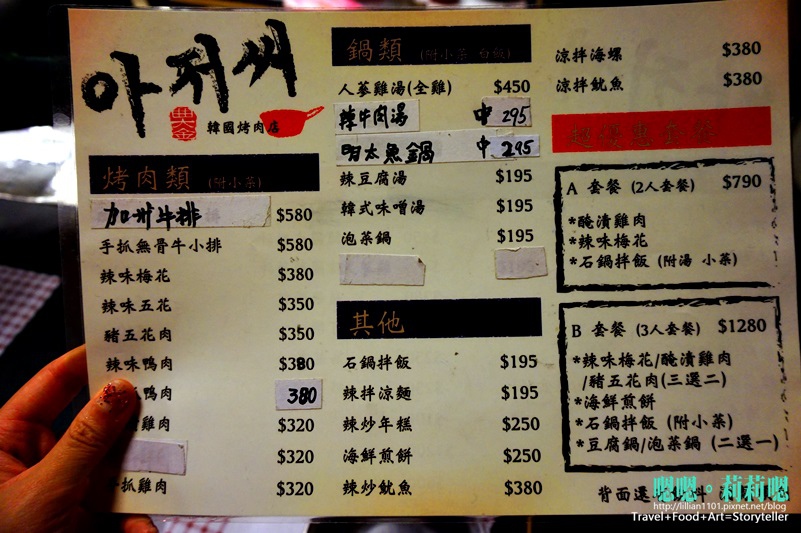 아저씨
韓國烤肉店
烤肉類 (附小菜)
加州牛排 $580
手抓無骨牛小排 $580
辣味梅花 $380
辣味五花 $350
豬五花肉 $350
辣味鴨肉 $380
鴨肉 380
雞肉 $320
$320
抓雞肉 $320
鍋類 (附小菜 白飯)
人蔘雞湯(全雞) $450
辣牛肉湯 中 295
明太魚鍋 中 295
辣豆腐湯 $195
韓式味噌湯 $195
泡菜鍋 $195
其他
石鍋拌飯 $195
辣拌涼麵 $195
辣炒年糕 $250
海鮮煎餅 $250
辣炒魷魚 $380
涼拌海螺 $380
涼拌魷魚 $380
超優惠套餐
A 套餐 (2人套餐) $790
*醃漬雞肉
*辣味梅花
*石鍋拌飯 (附湯 小菜)
B 套餐 (3人套餐) $1280
*辣味梅花/醃漬雞肉
/豬五花肉(三選二)
*海鮮煎餅
*石鍋拌飯 (附小菜)
*豆腐鍋/泡菜鍋 (二選一)
背面還
嗯嗯。莉莉嗯
http://lillian1101.pixnet.net/blog
Travel+Food+Art=Storyteller